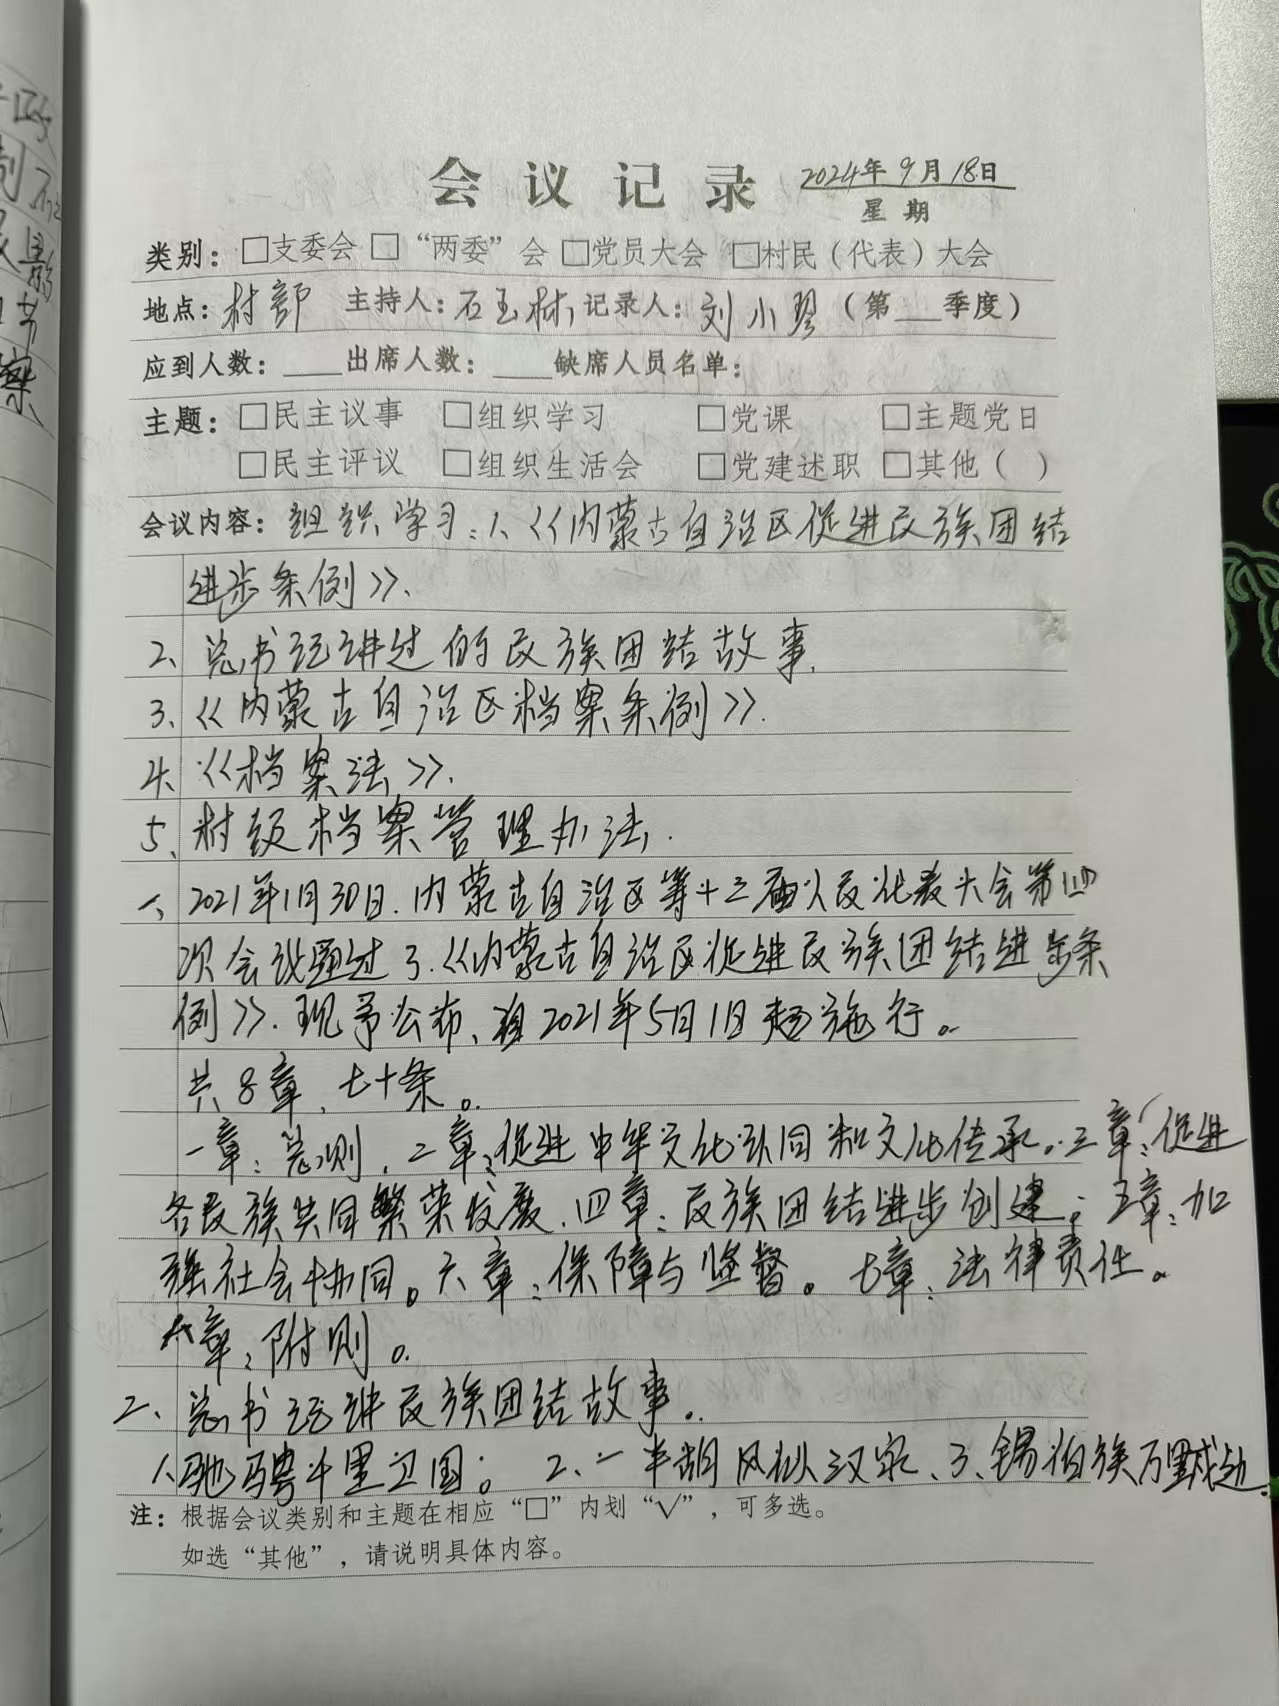 会议记录 2024年9月18日
星期
类别：□支委会 □“两委”会 □党员大会 □村民（代表）大会
地点：村部 主持人：石玉林 记录人：刘小琴（第___季度）
应到人数：____出席人数：____缺席人员名单：
主题：□民主议事 □组织学习 □党课 □主题党日
□民主评议 □组织生活会 □党建述职 □其他（ ）
会议内容：组织学习：1、《内蒙古自治区促进民族团结
进步条例》.
2、总书记讲过的民族团结故事.
3、《内蒙古自治区档案条例》.
4、《档案法》.
5、村级档案管理办法.
一、2021年1月30日.内蒙古自治区第十三届人民代表大会第四
次会议通过了.《内蒙古自治区促进民族团结进步条
例》.现予公布、自2021年5月1日起施行。
共8章、七十条。
一章：总则、二章：促进中华文化认同和文化传承。三章：促进
各民族共同繁荣发展、四章：民族团结进步创建；五章：加
强社会协同。六章：保障与监督。七章：法律责任。
八章：附则。
二、总书记讲民族团结故事。
1、驰骋千里卫国；2、一半胡风似汉家、3、锡伯族万里戍边
注：根据会议类别和主题在相应“□”内划“√”，可多选。
如选“其他”，请说明具体内容。